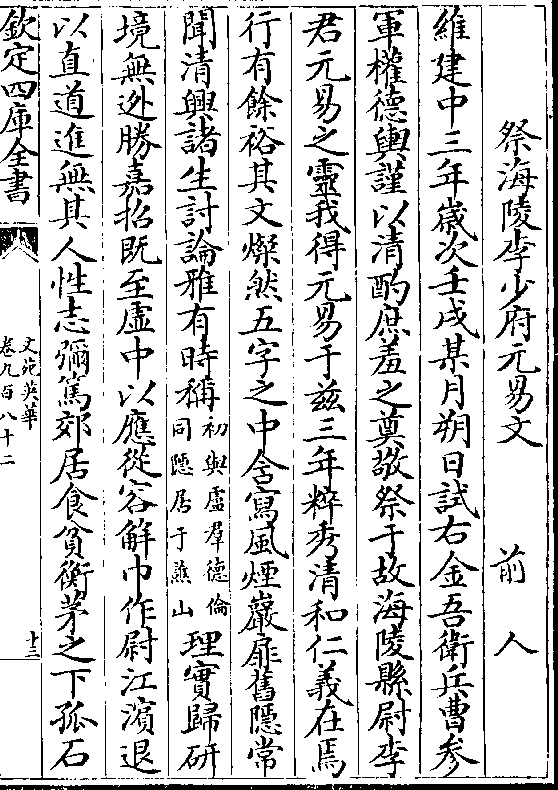 祭海陵李少府元易文　　前人
維建中三年歲次壬戌某月朔日試右金吾衛兵曹參
軍權德輿謹以清酌庶羞之奠敬祭于故海陵縣尉李
君元易之靈我得元易于兹三年粹秀清和仁義在焉
行有餘裕其文燦然五字之中含寫風煙巖扉舊隱常
聞清興諸生討論雅有時稱初與盧羣德倫同隱居于蕪山理實歸研
境無迯勝嘉招既至虛中以應從容解巾作尉江濵退
以直道進無其人性志彌篤郊居食貧衡茅之下孤石
欽定四庫全書
文苑英華
卷九百八十二
十三